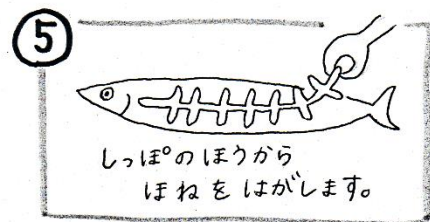 ⑤
しっぽのほうから
ほねをはがします。